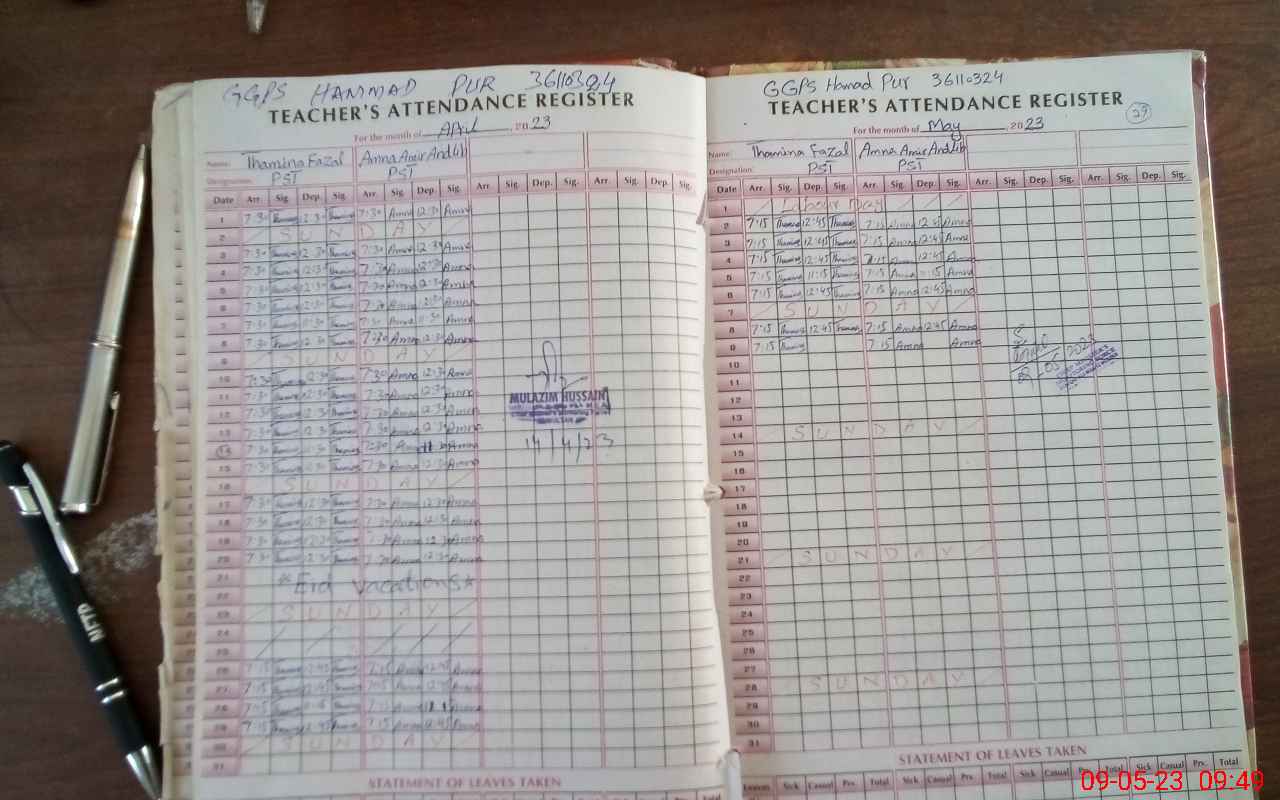 GGPS HAMMAD PUR 36110324
TEACHER'S ATTENDANCE REGISTER
For the month of April, 2023
Name: Thamina Fazal Amna Amir Andlib
Designation: PST PST
Date Arr. Sig. Dep. Sig. Arr. Sig. Dep. Sig. Arr. Sig. Dep. Sig. Arr. Sig. Dep. Sig.
1 7:30 12:30 7:30 Amna 12:30 Amna
2 SUNDAY
3 7:30 12:30 7:30 Amna 12:30 Amna
4 7:30 12:30 7:30 Amna 12:30 Amna
5 7:30 12:30 7:30 Amna 12:30 Amna
6 7:30 12:30 7:30 Amna 12:30 Amna
7 7:30 11:30 7:30 Amna 11:30 Amna
8 7:30 12:30 7:30 Amna 12:30 Amna
9 SUNDAY
10 7:30 12:30 7:30 Amna 12:30 Amna
11 7:30 12:30 7:30 Amna 12:30 Amna
12 7:30 12:30 7:30 Amna 12:30 Amna
13 7:30 12:30 7:30 Amna 12:30 Amna
14 7:30 7:30 Amna Amna
15 7:30 12:30 7:30 Amna 12:30 Amna
16 SUNDAY
17 7:30 12:30 7:30 Amna 12:30 Amna
18 7:30 12:30 7:30 Amna 12:30 Amna
19 7:30 12:30 7:30 Amna 12:30 Amna
20 7:30 12:30 7:30 Amna 12:30 Amna
21 Eid Vacations
22
23 SUNDAY
24
25
26 7:15 12:45 7:15 Amna 12:45 Amna
27 7:15 12:45 7:15 Amna Amna
28 7:15 7:15 Amna Amna
29 7:15 12:45 7:15 Amna 12:45 Amna
30 SUNDAY
31
STATEMENT OF LEAVES TAKEN
MULAZIM HUSSAIN
14/4/23
GGPS Hamad Pur 36110324
TEACHER'S ATTENDANCE REGISTER
29
For the month of May, 2023
Name: Thamina Fazal Amna Amir Andlib
Designation: PST PST
Date Arr. Sig. Dep. Sig. Arr. Sig. Dep. Sig. Arr. Sig. Dep. Sig. Arr. Sig. Dep. Sig.
1 Labour Day
2 7:15 Thamina 12:45 Thamina 7:15 Amna 12:45 Amna
3 7:15 Thamina 12:45 Thamina 7:15 Amna 12:45 Amna
4 7:15 Thamina 12:45 Thamina 7:15 Amna 12:45 Amna
5 7:15 Thamina 11:15 Thamina 7:15 Amna 11:15 Amna
6 7:15 Thamina 12:45 Thamina 7:15 Amna 12:45 Amna
7 SUNDAY
8 7:15 Thamina 12:45 Thamina 7:15 Amna 12:45 Amna
9 7:15 Thamina 7:15 Amna Amna
10
11
12
13
14 SUNDAY
15
16
17
18
19
20
21 SUNDAY
22
23
24
25
26
27
28 SUNDAY
29
30
31
09 05 2023
STATEMENT OF LEAVES TAKEN
Leaves Sick Casual Prv. Total Sick Casual Prv. Total Sick Casual Prv. Total Sick Casual Prv. Total
METP
09-05-23 09:49